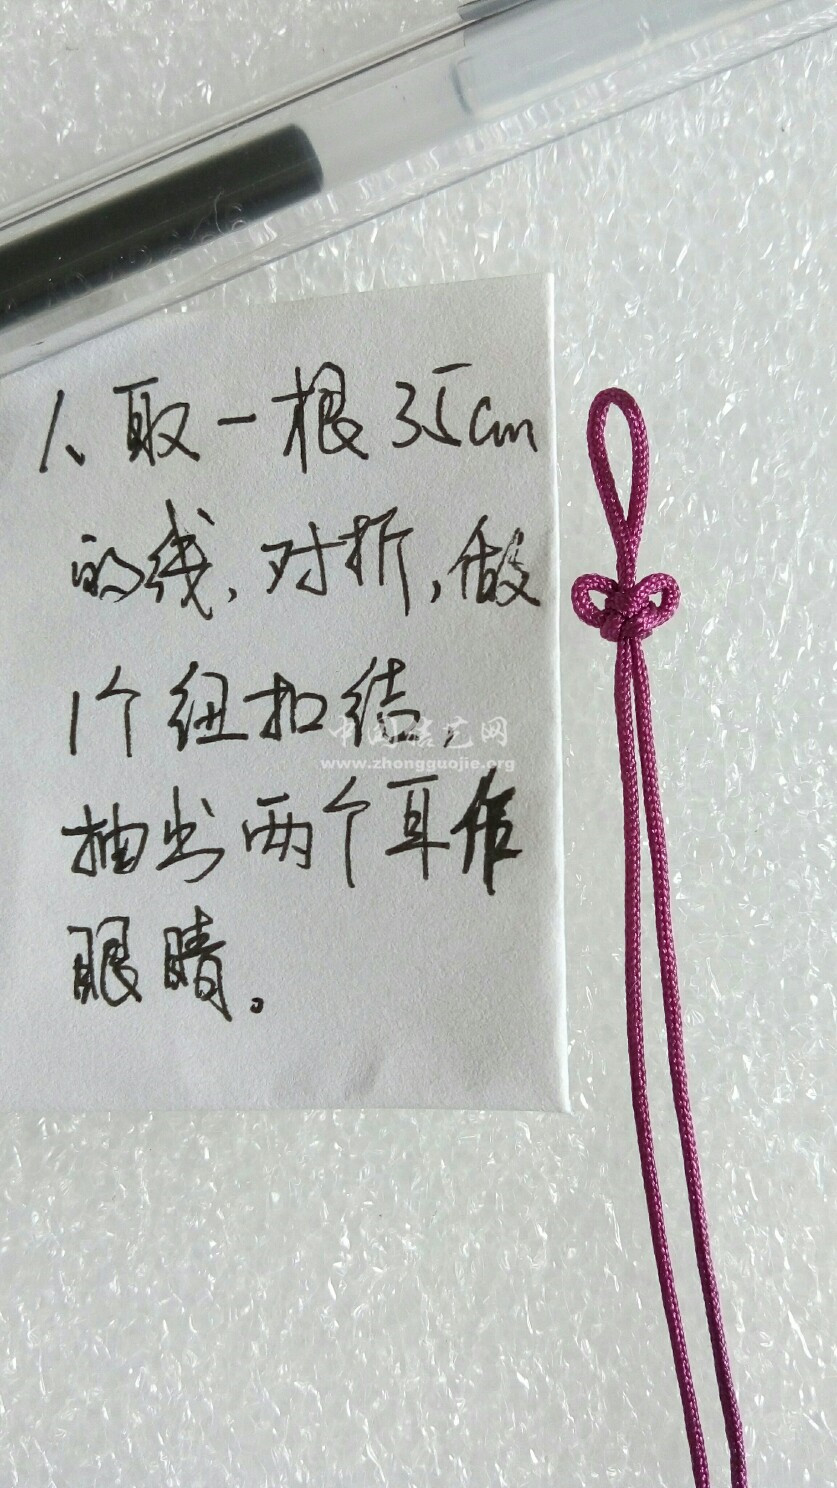 1、取一根35cm
的线，对折，做
1个纽扣结，
中国结艺网
www.zhongguojie.org
抽出两个耳作
眼睛。